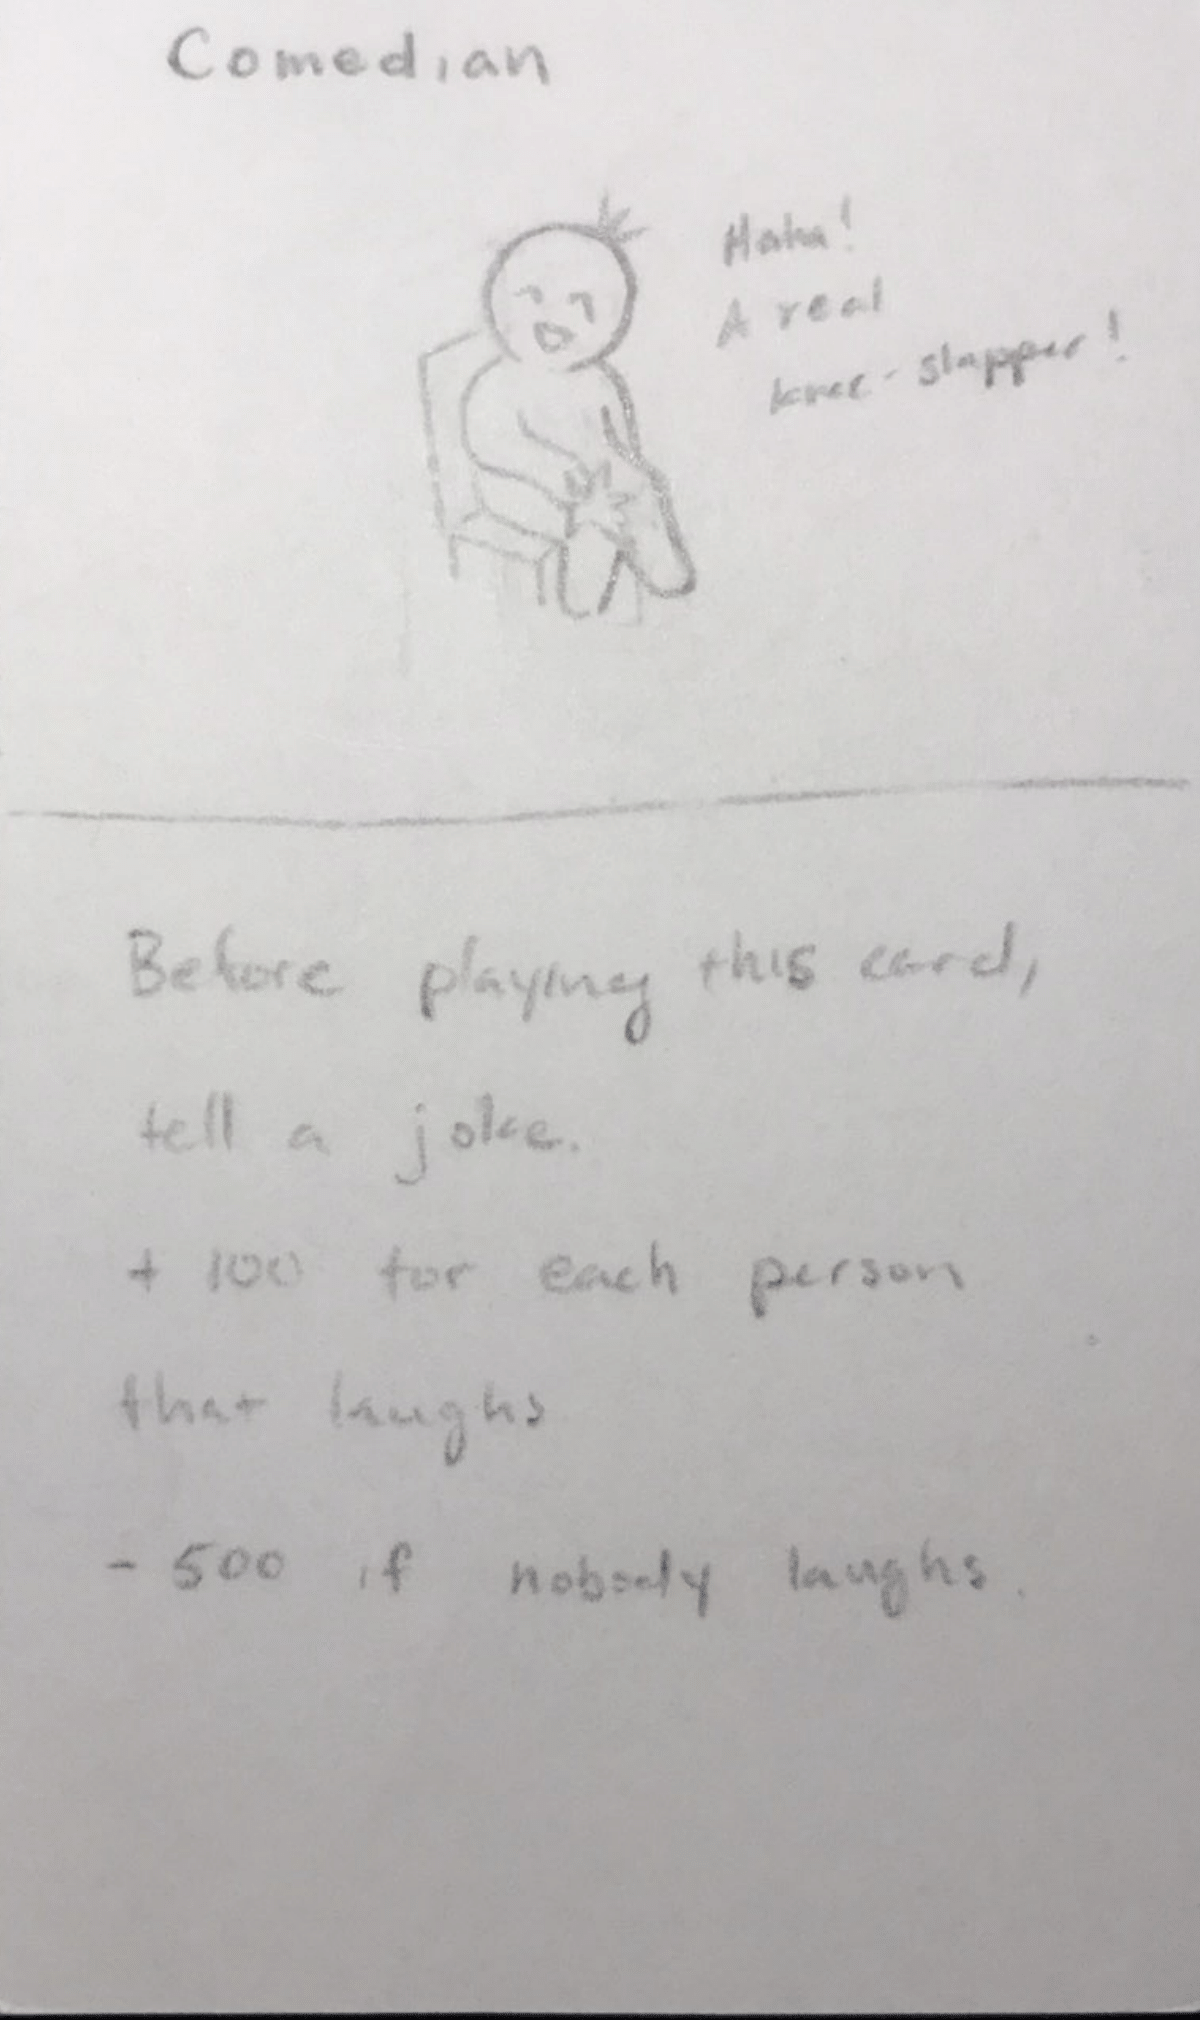 Comedian
Haha!
A real
knee-slapper!
Before playing this card,
tell a joke.
+ 100 for each person
that laughs
- 500 if nobody laughs.